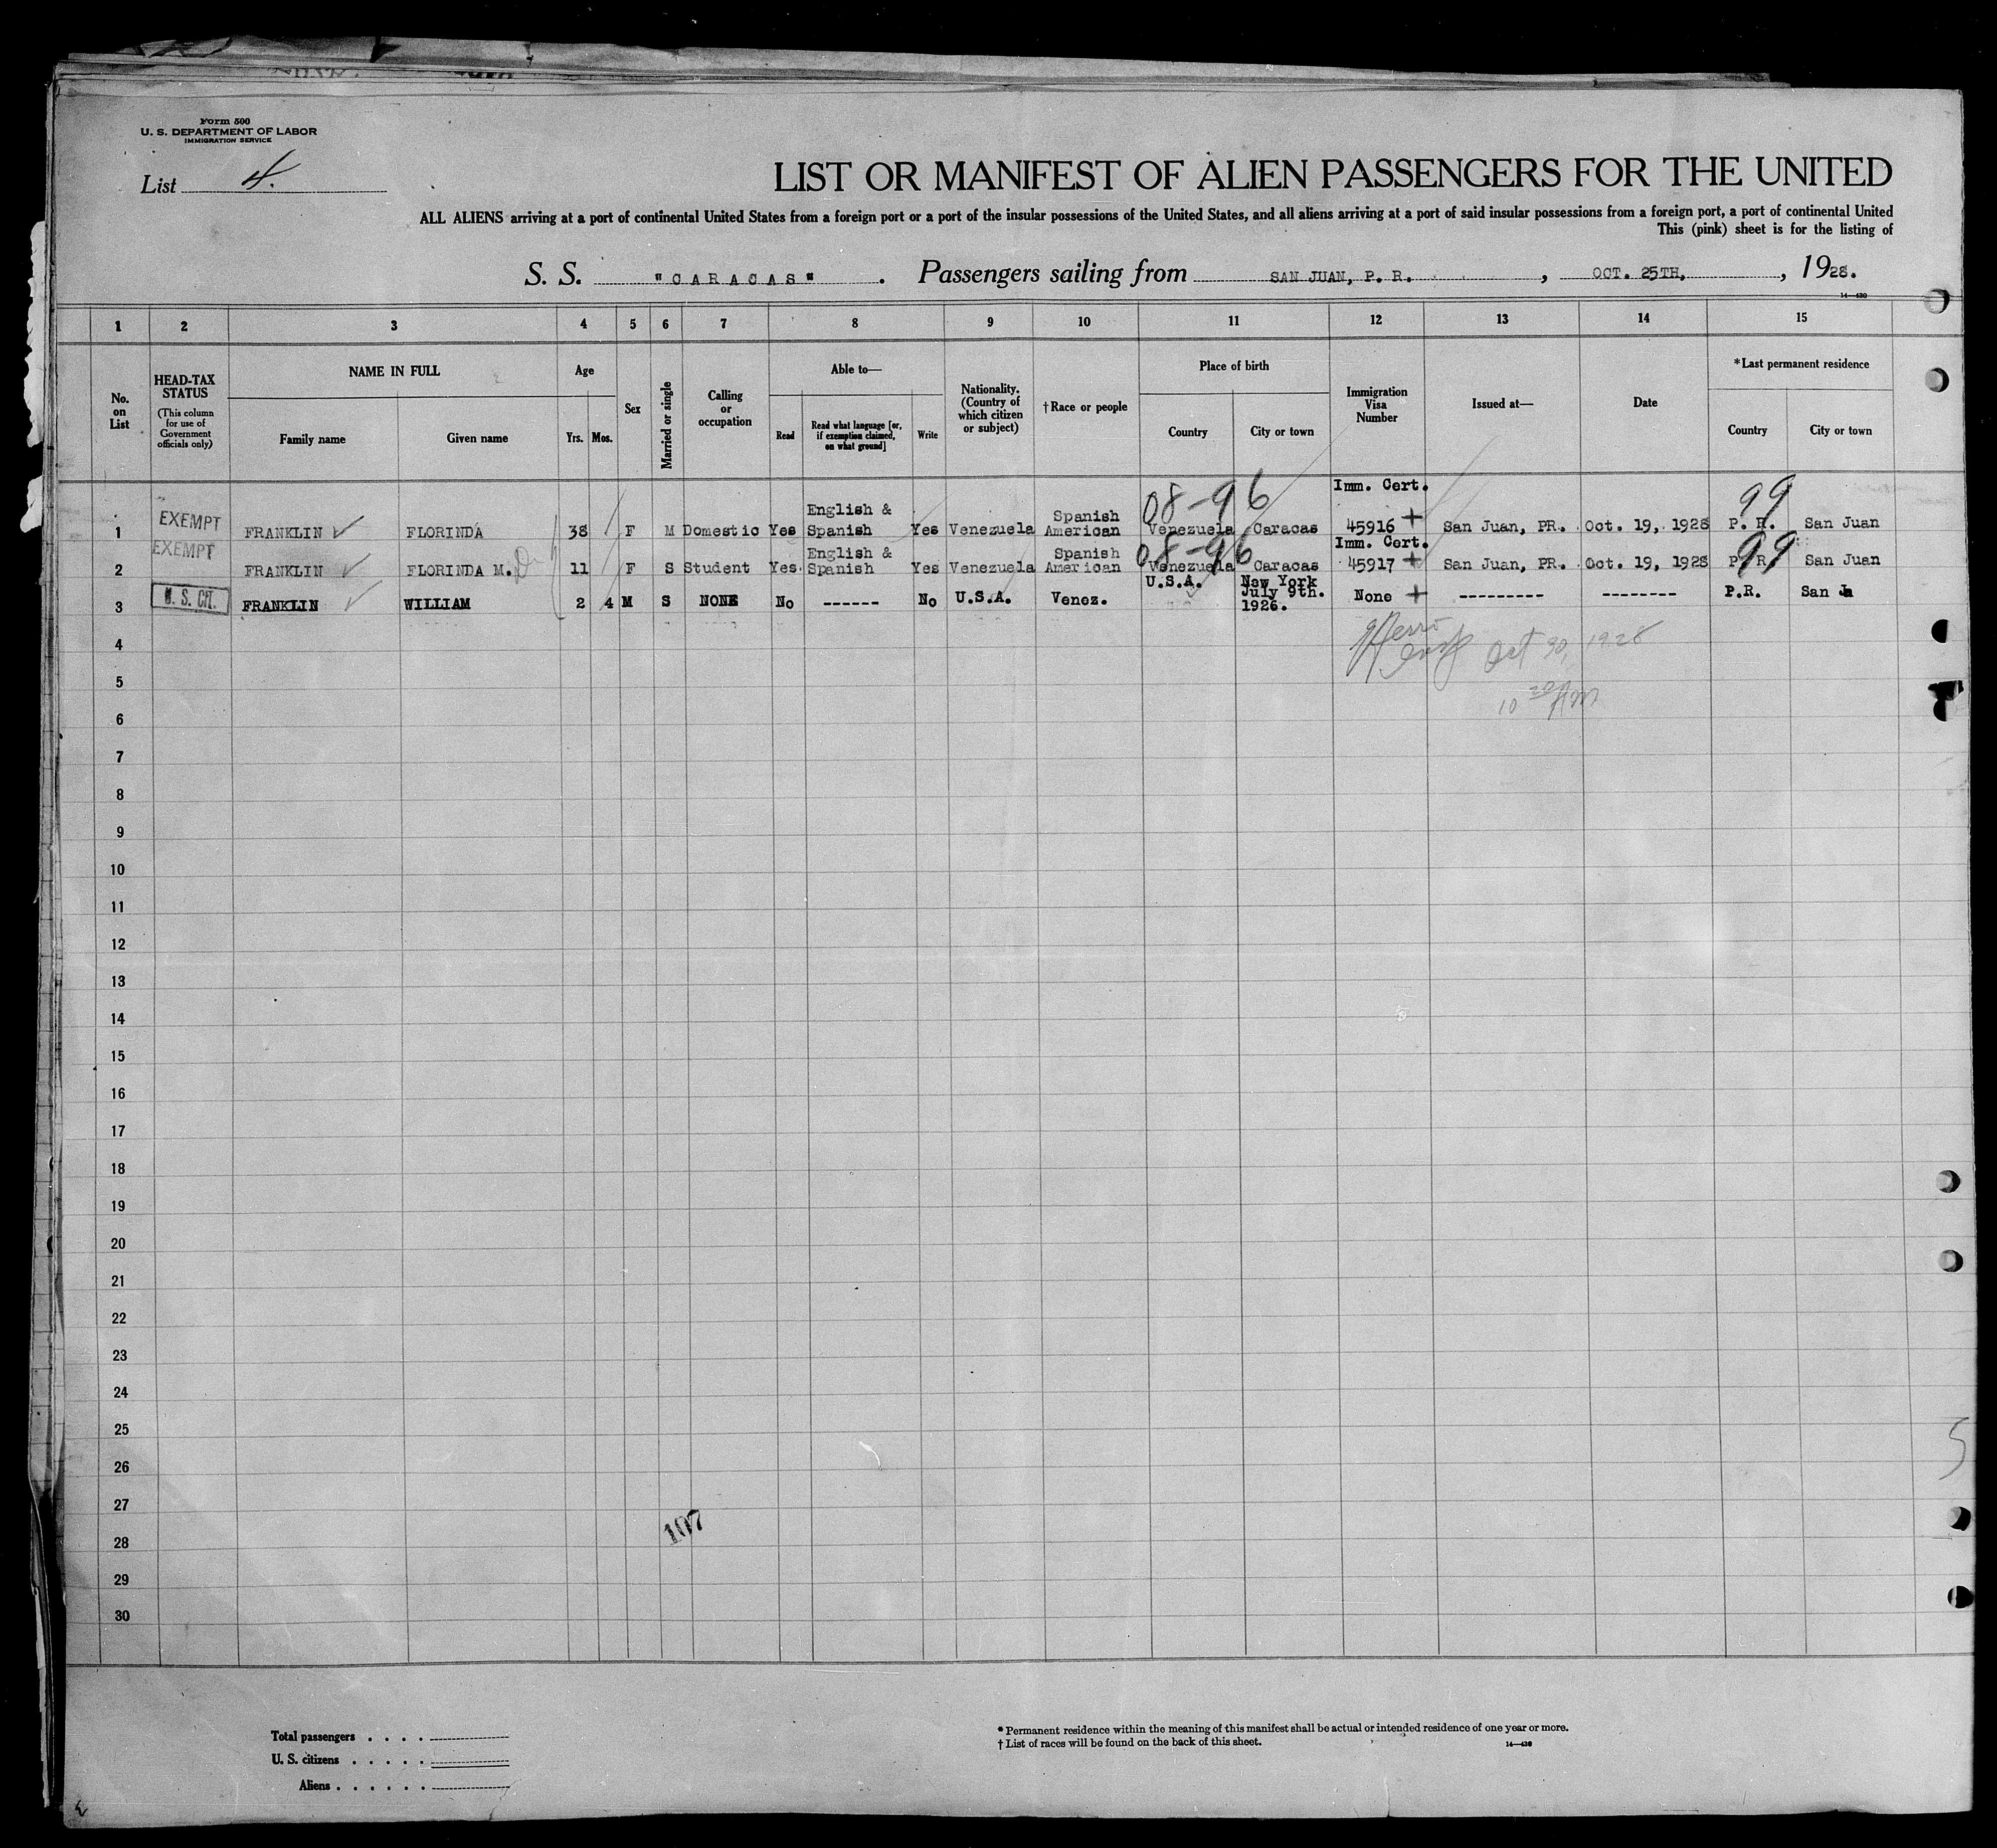 Form 500
U. S. DEPARTMENT OF LABOR
IMMIGRATION SERVICE
List 4.
LIST OR MANIFEST OF ALIEN PASSENGERS FOR THE UNITED
ALL ALIENS arriving at a port of continental United States from a foreign port or a port of the insular possessions of the United States, and all aliens arriving at a port of said insular possessions from a foreign port, a port of continental United
This (pink) sheet is for the listing of
S. S. "CARACAS" . Passengers sailing from SAN JUAN, P. R. , OCT. 25TH, , 1928.
14—430
1 2 3 4 5 6 7 8 9 10 11 12 13 14 15
No. on List
HEAD-TAX STATUS
(This column for use of Government officials only)
NAME IN FULL
Family name Given name
Age
Yrs. Mos.
Sex
Married or single
Calling or occupation
Able to—
Read
Read what language [or, if exemption claimed, on what ground]
Write
Nationality. (Country of which citizen or subject)
†Race or people
Place of birth
Country City or town
Immigration Visa Number
Issued at—
Date
*Last permanent residence
Country City or town
08-96 Imm. Cert. 99
1 EXEMPT FRANKLIN ✓ FLORINDA 38 F M Domestic Yes English & Spanish Yes Venezuela Spanish American Venezuela Caracas 45916 + San Juan, PR. Oct. 19, 1928 P. R. San Juan
08-96 Imm. Cert. 99
2 EXEMPT FRANKLIN ✓ FLORINDA M. 11 F S Student Yes. English & Spanish Yes Venezuela Spanish American Venezuela Caracas 45917 + San Juan, PR. Oct. 19, 1928 P. R. San Juan
3 U. S. CIT. FRANKLIN ✓ WILLIAM 2 4 M S NONE No ------ No U.S.A. Venez. U.S.A. New York July 9th. 1926. None + --------- -------- P.R. San
4
Oct 30, 1928
5
10 AM
6
7
8
9
10
11
12
13
14
15
16
17
18
19
20
21
22
23
24
25
26
27
107
28
29
30
Total passengers . . . .
U. S. citizens . . . . .
Aliens . . . . . .
* Permanent residence within the meaning of this manifest shall be actual or intended residence of one year or more.
† List of races will be found on the back of this sheet.
14—430